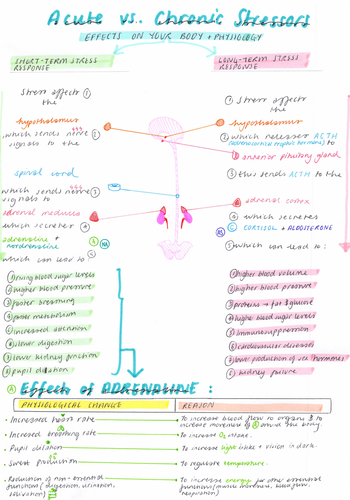 Acute vs. Chronic Stressors
EFFECTS ON YOUR BODY + PHYSIOLOGY
SHORT-TERM STRESS
RESPONSE
Stress affects ①
the
hypothalamus
which sends nerve ②
signals to the
spinal cord
which sends nerve ③
signals to
adrenal medulla
which secretes ④
adrenaline +
noradrenaline
A
NA
which can lead to ⑤
rising blood sugar levels
higher blood pressure
faster breathing
faster metabolism
increased
lower digestion
lower kidney function
pupil dilation
LONG-TERM STRESS
RESPONSE
① Stress affects
the
hypothalamus
② which releases ACTH
to
anterior pituitary gland
③ this sends ACTH to the
adrenal cortex
④ which secretes
C CORTISOL + ALDOSTERONE
⑤ which can lead to:
higher blood volume
higher blood pressure
proteins → fat + glucose
higher blood sugar levels
immunosuppression
cardiovascular diseases
lower production of sex hormones
kidney failure
A Effects of ADRENALINE:
PHYSIOLOGICAL CHANGE
REASON
Increased heart rate
To increase blood flow to organs + to
increase movement of A around the body.
Increased breathing rate
To increase O₂ intake.
Pupil dilation
To increase light intake + vision in dark.
Sweat production
To regulate temperature.
Reduction of non-essential
functions (digestion, urination,
salivation)
To increase energy for other essential
functions (muscle movement, blood flow,
respiration)